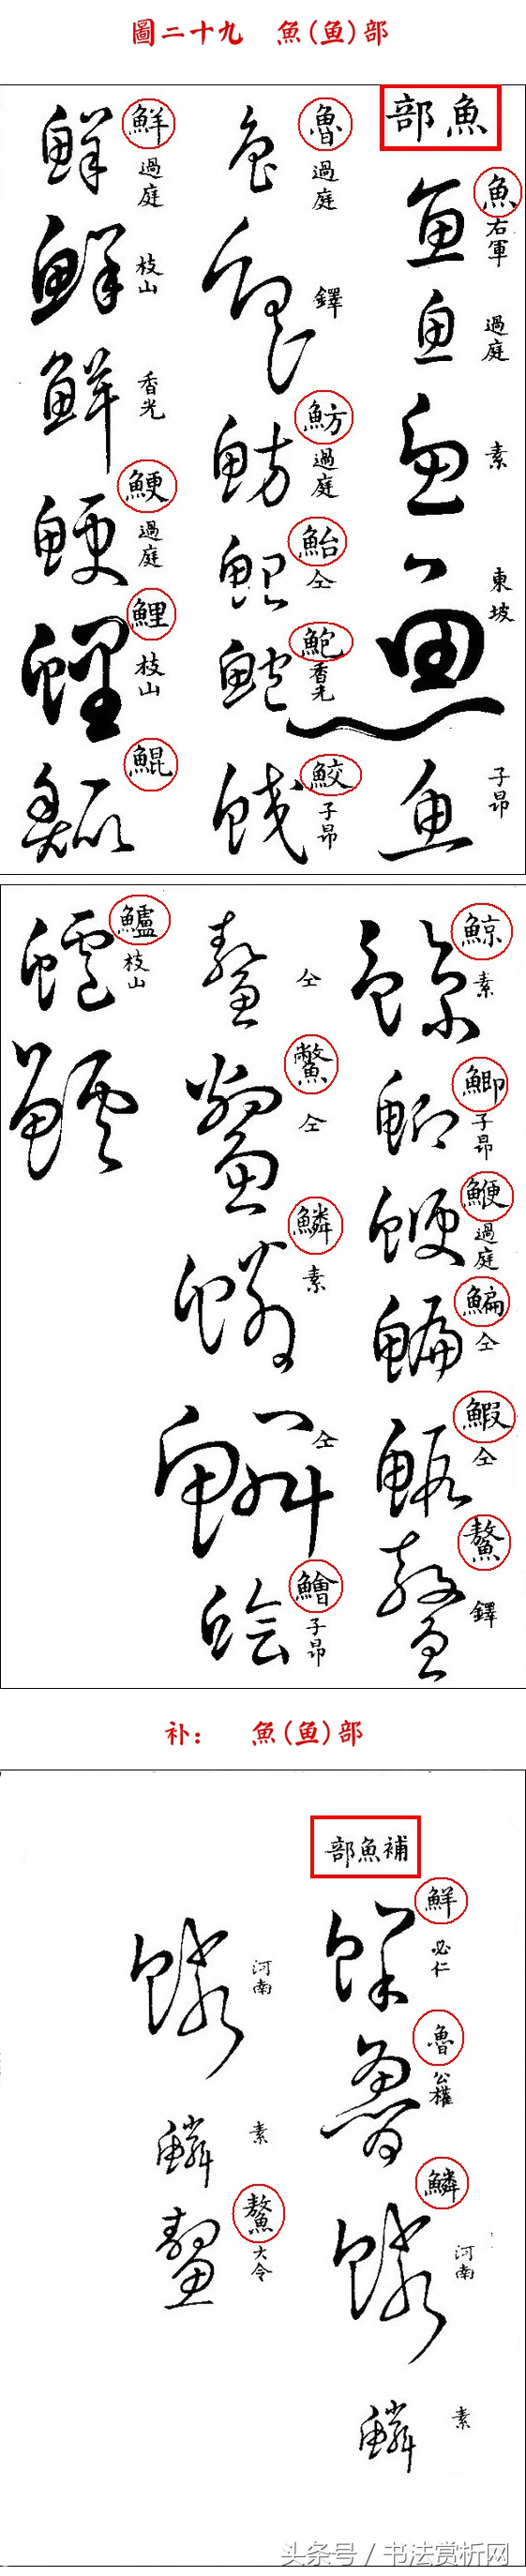 圖二十九 魚(鱼)部
魚部
魚 右軍
過庭
素
東坡
子昂
魯 過庭
鐸
魴 過庭
鮐 仝
鮑 香光
鮫 子昂
鮮 過庭
枝山
香光
鯁 過庭
鯉 枝山
鯤
鯨 素
鯽 子昂
鯾 過庭
鯿 仝
鰕 仝
鰲 鐸
仝
鱉 仝
鱗 素
仝
鱠 子昂
鱸 枝山
补: 魚(鱼)部
補魚部
鮮 必仁
魯 公權
鱗 河南
素
河南
素
鰲 大令
头条号 / 书法赏析网